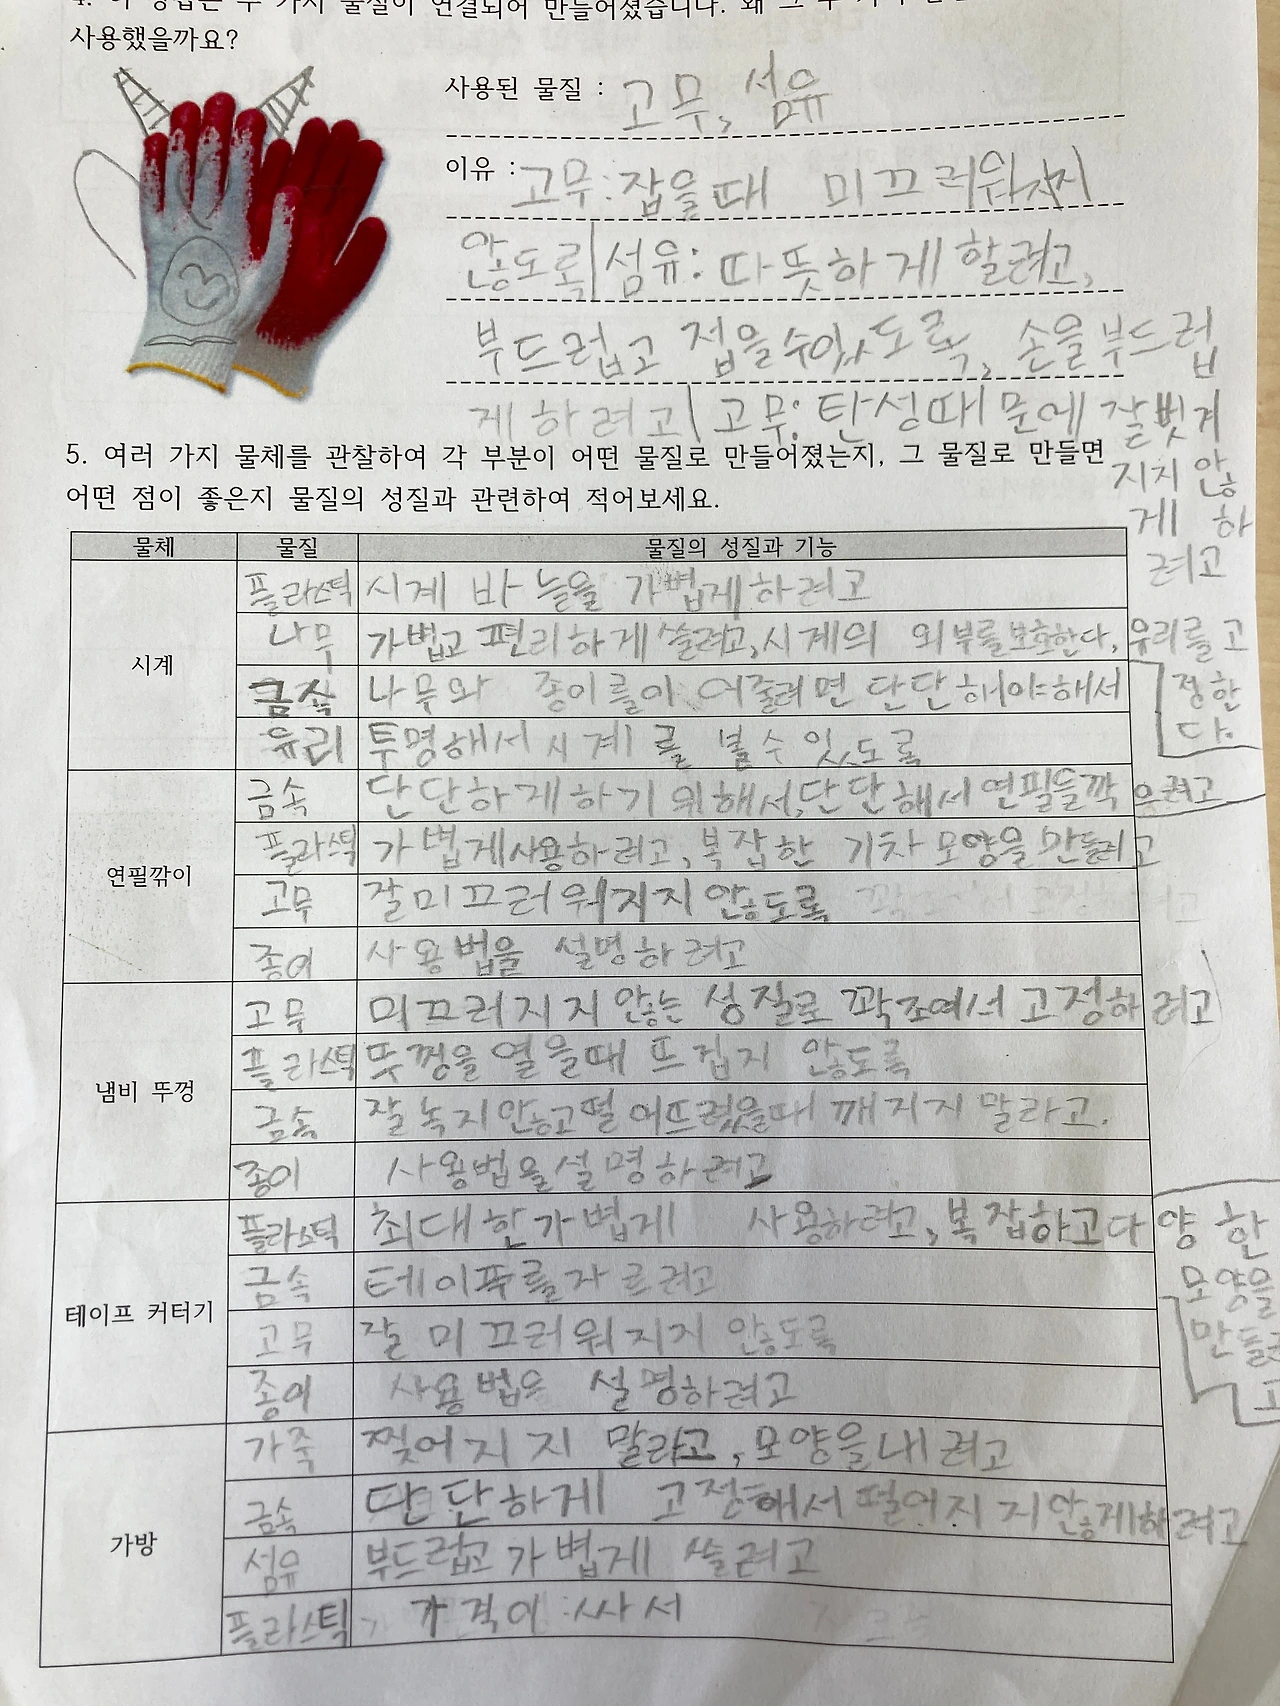 사용했을까요?
사용된 물질 : 고무, 섬유
이유 : 고무: 잡을때 미끄러워지지
않도록 섬유: 따뜻하게 할려고,
부드럽고 접을수있도록, 손을 부드럽
게 하려고 고무: 탄성때문에 잘벗겨
지지 않
게 하
려고
5. 여러 가지 물체를 관찰하여 각 부분이 어떤 물질로 만들어졌는지, 그 물질로 만들면
어떤 점이 좋은지 물질의 성질과 관련하여 적어보세요.
물체 물질 물질의 성질과 기능
시계
플라스틱 시계 바늘을 가볍게하려고
나무 가볍고 편리하게 쓸려고, 시계의 외부를 보호한다, 유리를 고
정한
다.
금속 나무와 종이를 어줄려면 단단해야해서
유리 투명해서 시계를 볼수있도록
연필깎이
금속 단단하게하기 위해서, 단단해서 연필을깍으려고
플라스틱 가볍게사용하려고, 복잡한 기차 모양을 만들려고
고무 잘미끄러워지지 않도록
종이 사용법을 설명하려고
냄비 뚜껑
고무 미끄러지지 않는 성질로 꽉조여서 고정하려고
플라스틱 뚜껑을 열을때 뜨겁지 않도록
금속 잘녹지않고떨어뜨렸을때 깨지지 말라고.
종이 사용법을설명하려고
테이프 커터기
플라스틱 최대한가볍게 사용하려고, 복잡하고다양한
모양을
만들려
고
금속 테이프를자르려고
고무 잘 미끄러워지지 않도록
종이 사용법을 설명하려고
가방
가죽 찢어지지 말라고, 모양을내려고
금속 단단하게 고정해서 떨어지지않게하려고
섬유 부드럽고가볍게 쓸려고
플라스틱 가격이 싸서